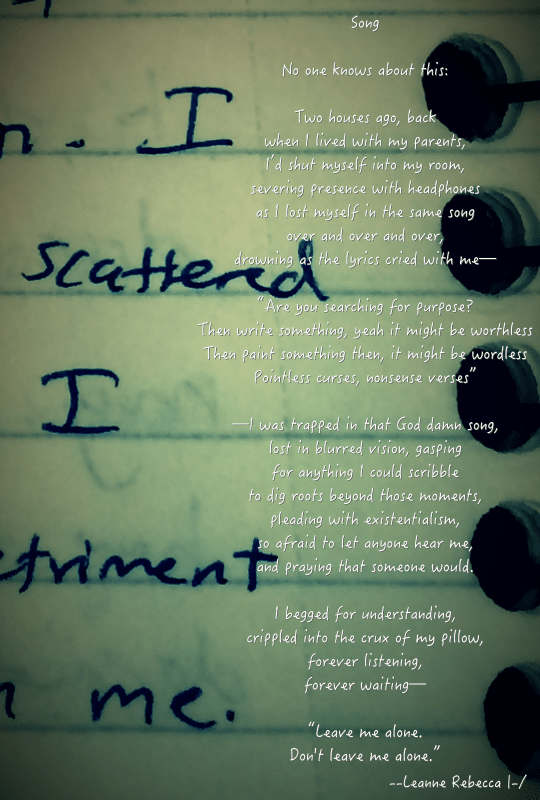 Song
No one knows about this:
Two houses ago, back
when I lived with my parents,
I'd shut myself into my room,
severing presence with headphones
as I lost myself in the same song
over and over and over,
drowning as the lyrics cried with me—
"Are you searching for purpose?
Then write something, yeah it might be worthless
Then paint something then, it might be wordless
Pointless curses, nonsense verses"
—I was trapped in that God damn song,
lost in blurred vision, gasping
for anything I could scribble
to dig roots beyond those moments,
pleading with existentialism,
so afraid to let anyone hear me,
and praying that someone would.
I begged for understanding,
crippled into the crux of my pillow,
forever listening,
forever waiting—
"Leave me alone.
Don't leave me alone."
--Leanne Rebecca |-/
. I
scattered
I
triment
me.